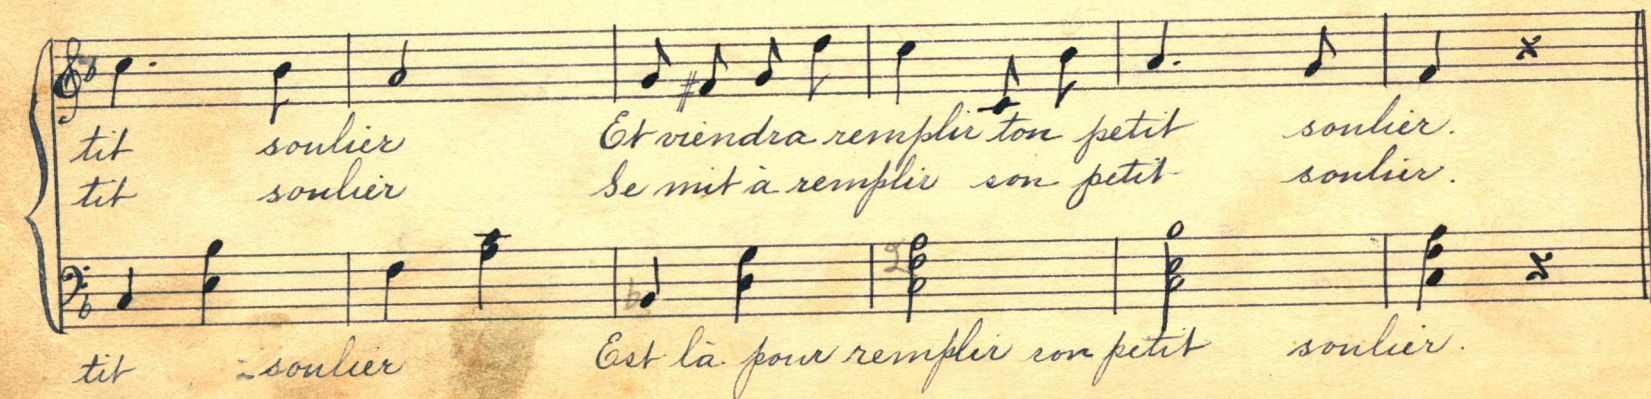 tit soulier Et viendra remplir ton petit soulier.
tit soulier Se mit à remplir son petit soulier.
tit soulier Est là pour remplir son petit soulier.